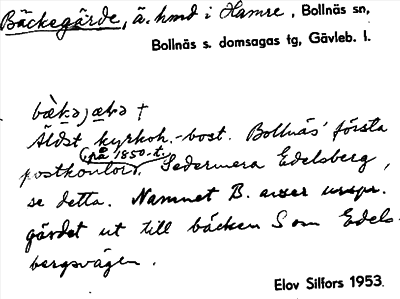 Bäckegärde, ä. hmd i Hamre, Bollnäs sn,
Bollnäs s. domsagas tg, Gävleb. l.
Äldst kyrkoh.-bost. Bollnäs' första
på 1850-t.
postkontor. Sedermera Edelsberg,
se detta. Namnet B. avser urspr.
gärdet ut till bäcken S om Edels-
bergsvägen.
Elov Silfors 1953.